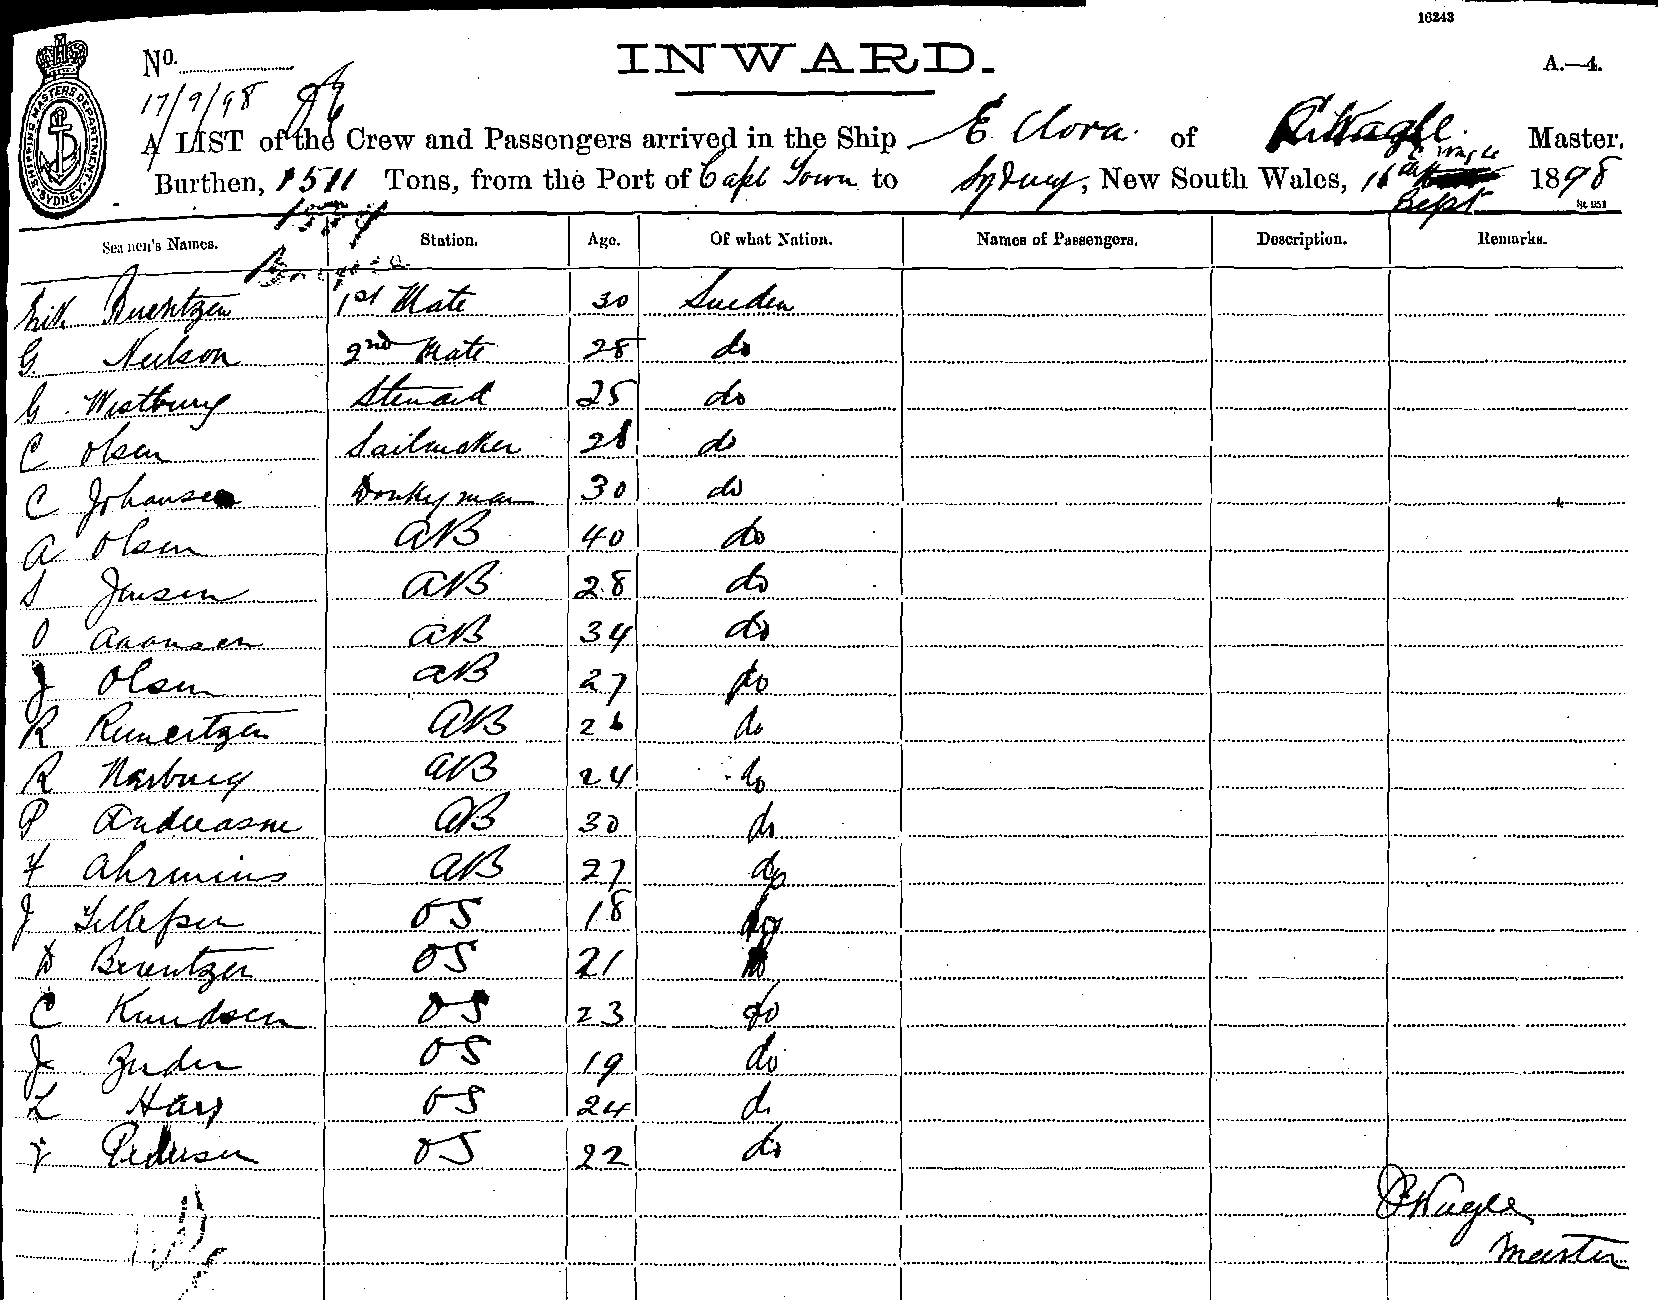 16243
No.
INWARD.
A.—4.
17/9/98
A LIST of the Crew and Passengers arrived in the Ship E Clora of Master,
Burthen, 1511 Tons, from the Port of Cape Town to Sydney, New South Wales, 16th Sept 1898
SHIPPING MASTERS DEPARTMENT. SYDNEY.
St 951
Seamen's Names. Station. Age. Of what Nation. Names of Passengers. Description. Remarks.
Erik 1st Mate 30 Sweden
G. Neilson 2nd Mate 28 do
G Westburg Steward 25 do
C Olsen Sailmaker 28 do
C Johansen Donkeyman 30 do
A Olsen AB 40 do
S Jensen AB 28 do
O Aaonsen AB 34 do
J Olsen AB 27 do
R AB 26 do
R AB 24 do
P Andreasne AB 30 do
F AB 27 do
J Tellefsen OS 18 do
D Berentzen OS 21 do
C Knudsen OS 23 do
J OS 19 do
L OS 24 do
Pedersen OS 22 do
Wagle
Master